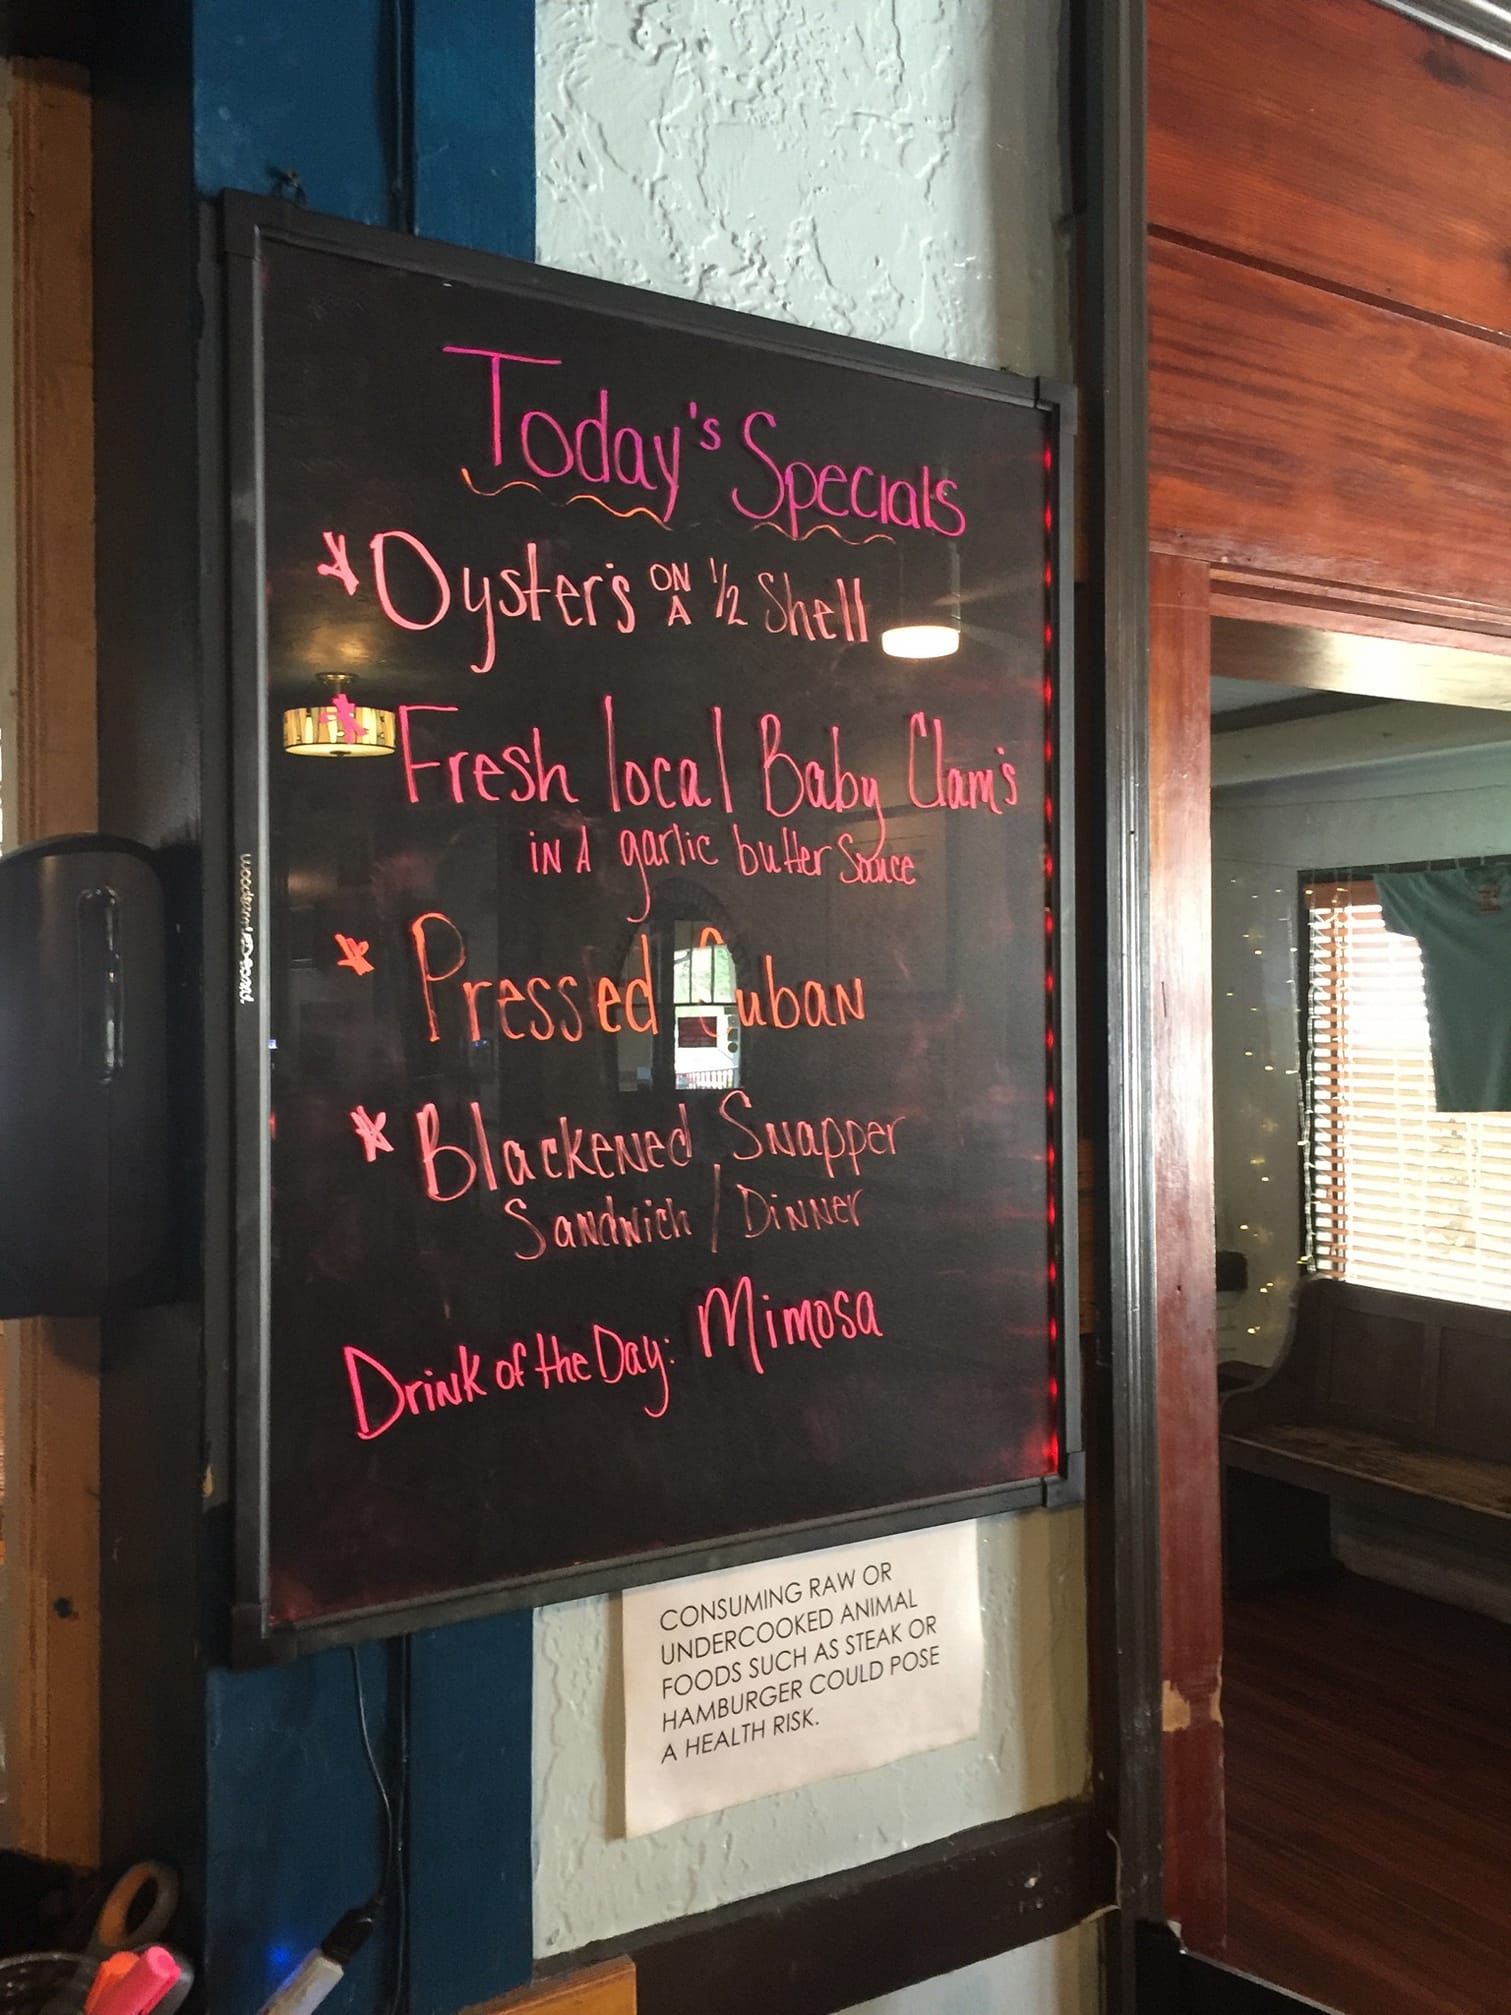 Today's Specials
* Oyster's ON A 1/2 Shell
* Fresh local Baby Clam's
IN A garlic butter Sauce
* Pressed Cuban
* Blackened Snapper
Sandwich / Dinner
Drink of the Day: Mimosa
CONSUMING RAW OR
UNDERCOOKED ANIMAL
FOODS SUCH AS STEAK OR
HAMBURGER COULD POSE
A HEALTH RISK.